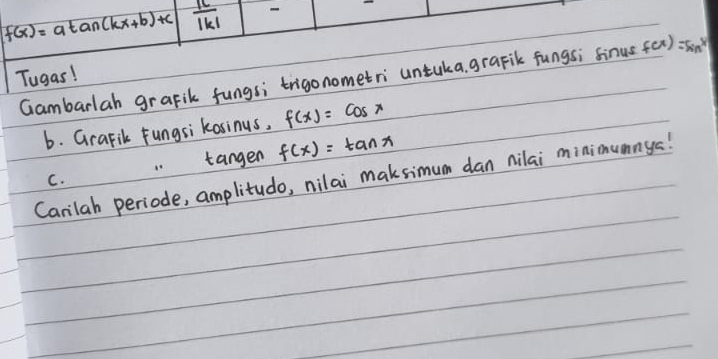 f(x) = a tan(kx+b)+c π/|k| - -
Tugas!
Gambarlah grafik fungsi trigonometri untuk a. grafik fungsi sinus f(x) = sin x
b. Grafik fungsi kosinus, f(x) = cos x
c. " tangen f(x) = tan x
Carilah periode, amplitudo, nilai maksimum dan nilai minimumnya!